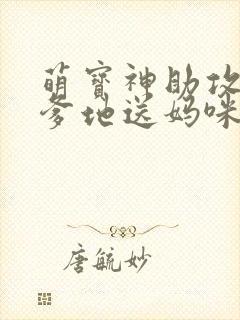 萌宝神助攻
爹地送妈咪
唐毓妙